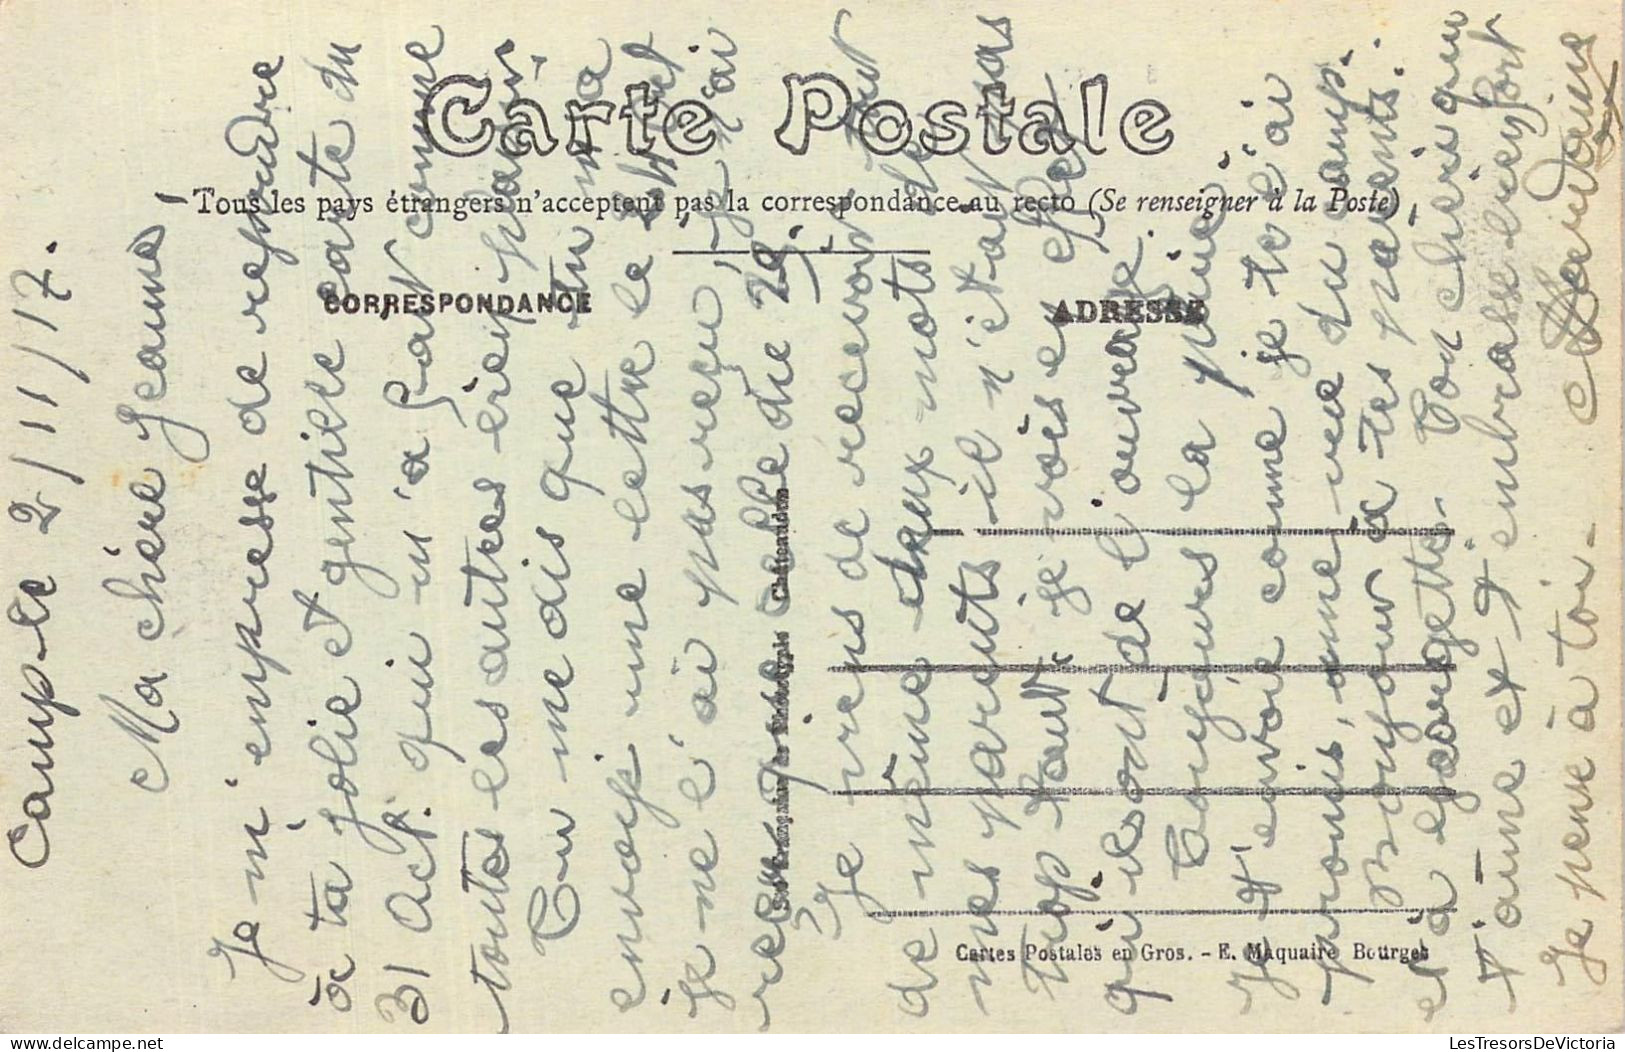 Carte Postale
Tous les pays étrangers n'acceptent pas la correspondance au recto (Se renseigner à la Poste)
CORRESPONDANCE
ADRESSE
Cartes Postales en Gros. - E. Maquaire Bourges
Camp-le 2/11/17.
Ma chère Jeanne,
Je m'empresse de repondre
à ta jolie et gentille carte du
31 Act. qui m'a fait comme
toutes les autres grép plaisir.
Tu me dis que tu m'a
envoyé une lettre le
je ne l'ai pas reçu, je n'ai
reçu que celle du 29.
Je viens de recevoir
de même deux mots de
mes parents il n'était pas
trop tard je vois en effet
qu'ils ont de l'ouvrage.
Toujours la pluie.
Je t'envoie comme je te l'ai
promis, une vue du camp.
Bonjour à tes parents.
et à Georgette. Ton chéri qui
t'aime et t'embrasse bien fort
Je pense à toi -
LesTresorsDeVictoria
© delcampe.net